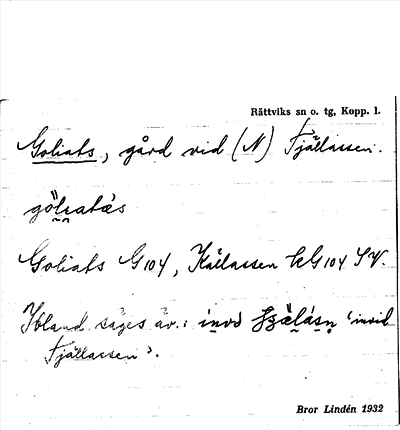 Rättviks sn o. tg, Kopp. l.
Goliats, gård vid (N) Fjällassen.
Goliats G104, Källassen kG104 SV.
Ibland säges äv.: 'invid
Fjällassen'.
Bror Lindén 1932